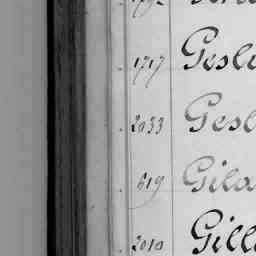 1717 Gesl
2033 Gesl
619 Gila
2010 Gill